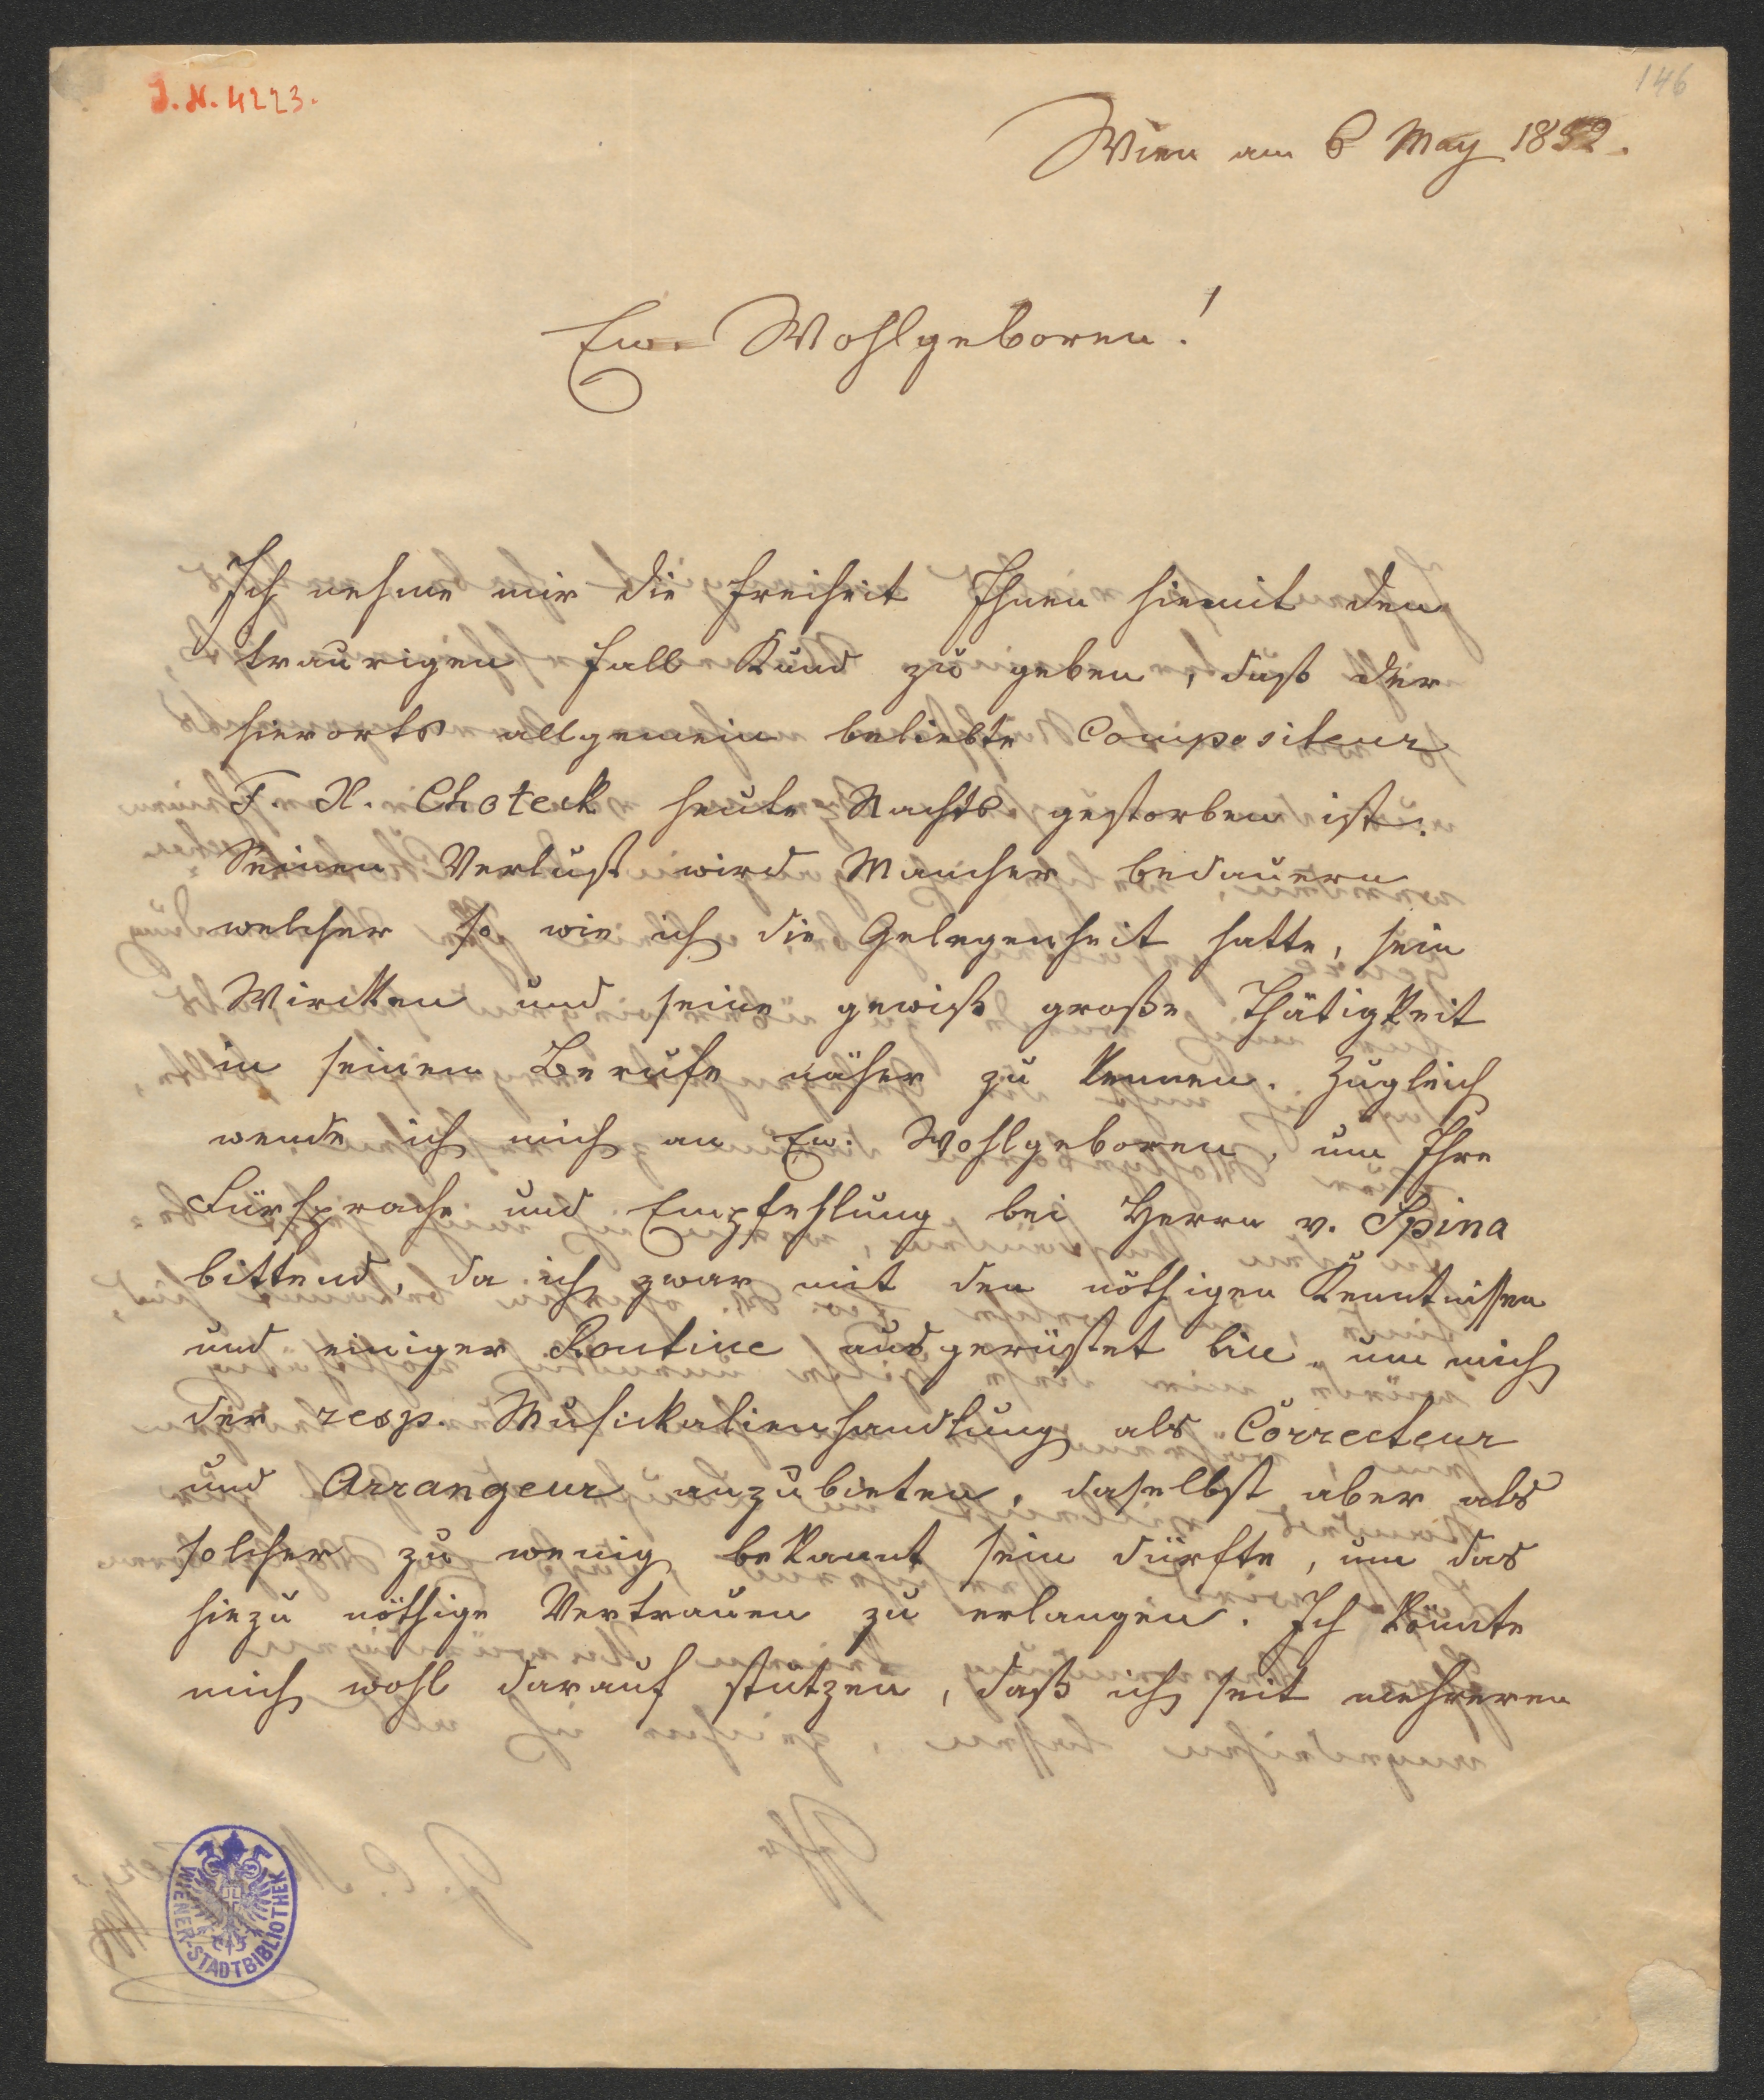 J.N. 4223.
146
Wien am 6 May 1852.
Ew. Wohlgeboren!
Ich nehme mir die Freiheit Ihnen hiemit den
traurigen Fall Kund zu geben, daß der
hierorts allgemein beliebte Compositeur
F. X. Choteck heute Nachts gestorben ist.
Seinen Verlust wird Mancher bedauern
welcher so wie ich die Gelegenheit hatte, sein
Wircken und seine gewiß große Thätigkeit
in seinem Berufe näher zu kennen. Zugleich
wende ich mich an Ew. Wohlgeboren, um Ihre
Fürsprache und Empfehlung bei Herrn v. Spina
bittend, da ich zwar mit den nöthigen Kenntnissen
und einiger Routine ausgerüstet bin um mich
der resp. Musickalienhandlung als Correcteur
und Arrangeur anzubieten, daselbst aber als
solcher zu wenig bekannt sein dürfte, um das
hiezu nöthige Vertrauen zu erlangen. Ich könnte
mich wohl darauf stützen, daß ich seit mehreren
WIENER-STADTBIBLIOTHEK